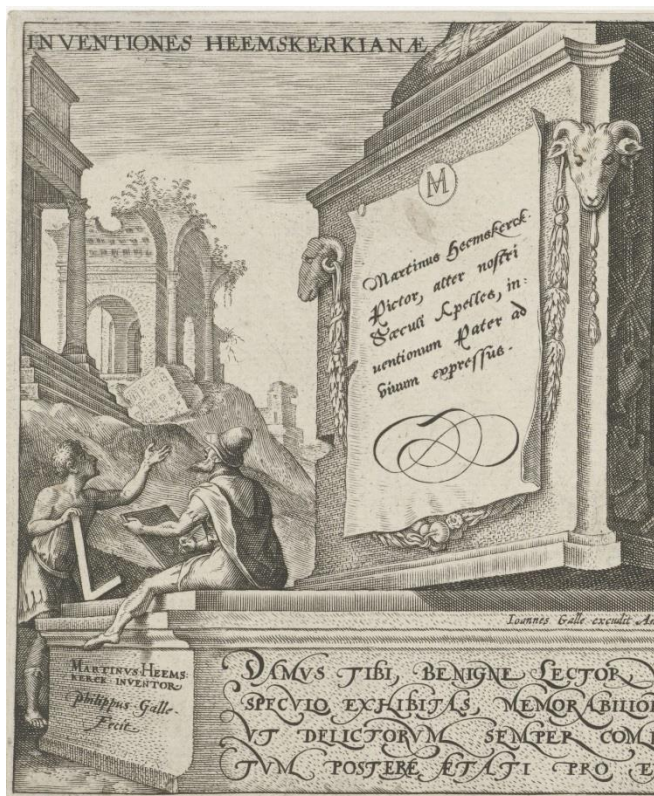 INVENTIONES HEEMSKERKIANÆ
M
Martinus Heemskerck
Pictor, alter nostri
Sæculi Apelles, in:
uentionum Pater ad
viuum expressus.
Ioannes Galle excudit
MARTINVS HEEMS
KERCK INVENTOR
Philippus Galle.
Fecit
DAMVS TIBI, BENIGNE LECTOR,
SPECVIO EXHIBITAS, MEMORABILIOR
VT DELICTORVM SEMPER COM
TVM POSTERÆ ÆTATI PRO E